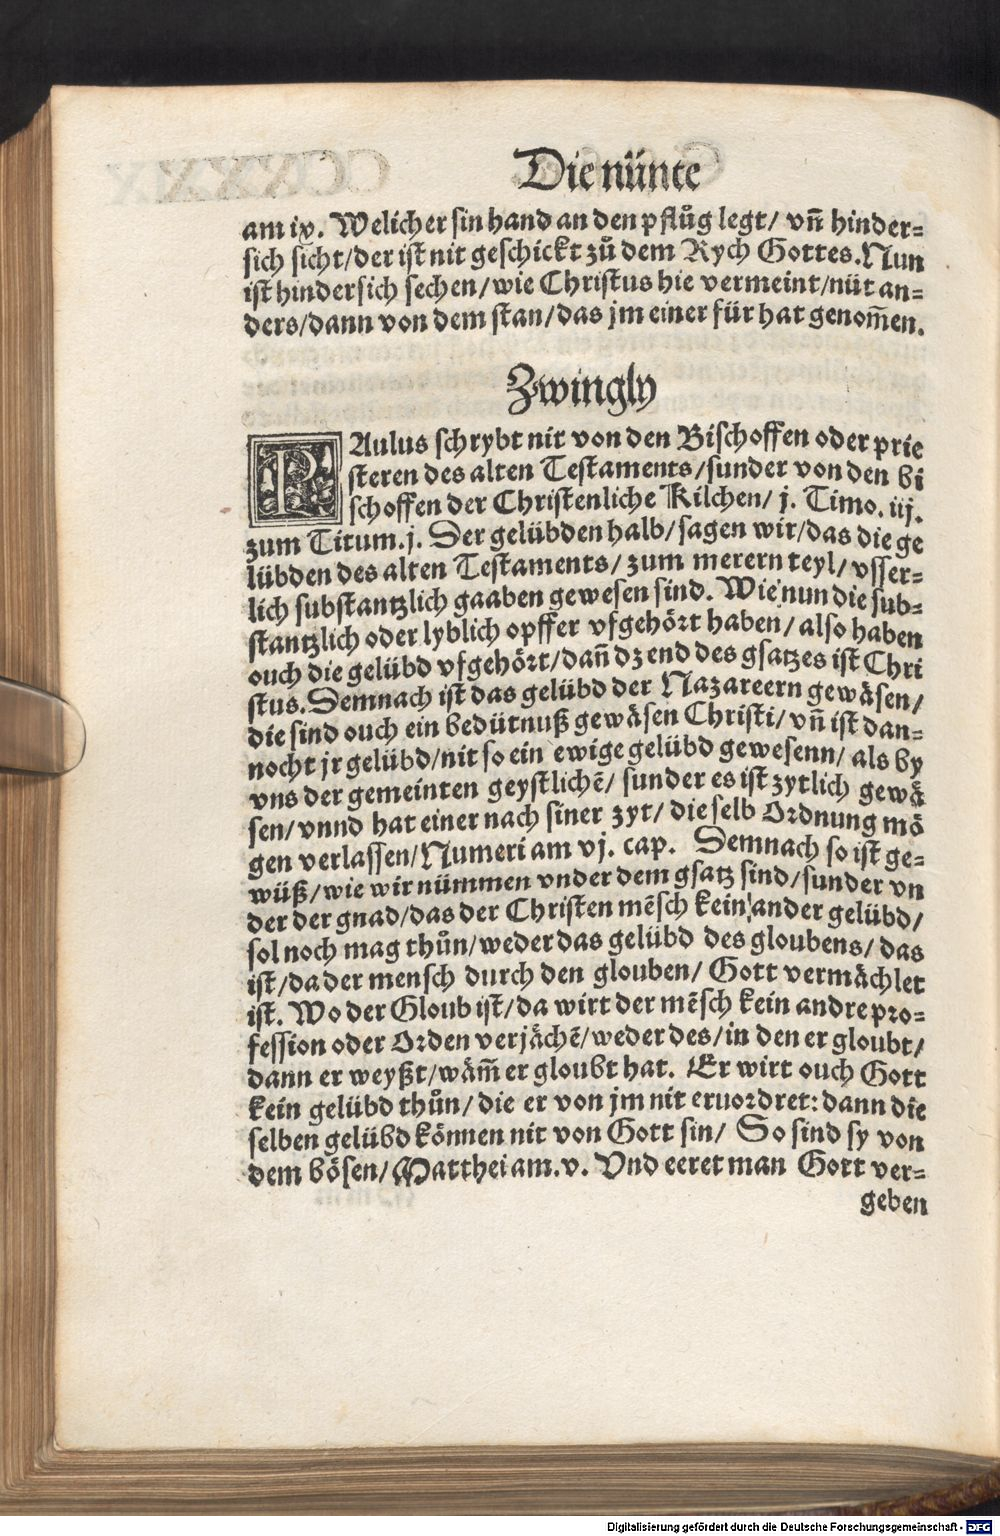 Die nünte
am ix. Welicher sin hand an den pflůg legt/ vn̄ hinder⸗
sich sicht/der ist nit geschickt zů dem Rych Gottes. Nun
ist hindersich sechen/wie Christus hie vermeint/nüt an⸗
ders/dann von dem stan/das jm einer für hat genom̄en.
Zwingly
PAulus schrybt nit von den Bischoffen oder prie
steren des alten Testaments/sunder von den bi
schoffen der Christenliche Kilchen/ j. Timo. iij.
zum Titum.j. Der gelübden halb/sagen wir/das die ge
lübden des alten Testaments/ zum merern teyl/ vsser⸗
lich substantzlich gaaben gewesen sind. Wie nun die sub⸗
stantzlich oder lyblich opffer vfgehört haben/ also haben
ouch die gelübd vfgehört/dan̄ dz end des gsatzes ist Chri
stus. Demnach ist das gelübd der Nazareern gewäsen/
die sind ouch ein bedütnuß gewäsen Christi/ vn̄ ist dan⸗
nocht jr gelübd/nit so ein ewige gelübd gewesenn/ als by
vns der gemeinten geystlichē/ sunder es ist zytlich gewä
sen/ vnnd hat einer nach siner zyt/ die selb Ordnung mö
gen verlassen/Numeri am vj. cap. Demnach so ist ge⸗
wüß/wie wir nümmen vnder dem gsatz sind/sunder vn
der der gnad/das der Christen mēsch kein ander gelübd/
sol noch mag thůn/weder das gelübd des gloubens/ das
ist/da der mensch durch den glouben/ Gott vermächlet
ist. Wo der Gloub ist/da wirt der mēsch kein andre pro⸗
fession oder Orden verjächē/weder des/in den er gloubt/
dann er weyßt/wäm̄ er gloubt hat. Er wirt ouch Gott
kein gelübd thůn/ die er von jm nit eruordret: dann die
selben gelübd können nit von Gott sin/ So sind sy von
dem bösen/Matthei am.v. Vnd eeret man Gott ver⸗
geben
Digitalisierung gefördert durch die Deutsche Forschungsgemeinschaft - DFG